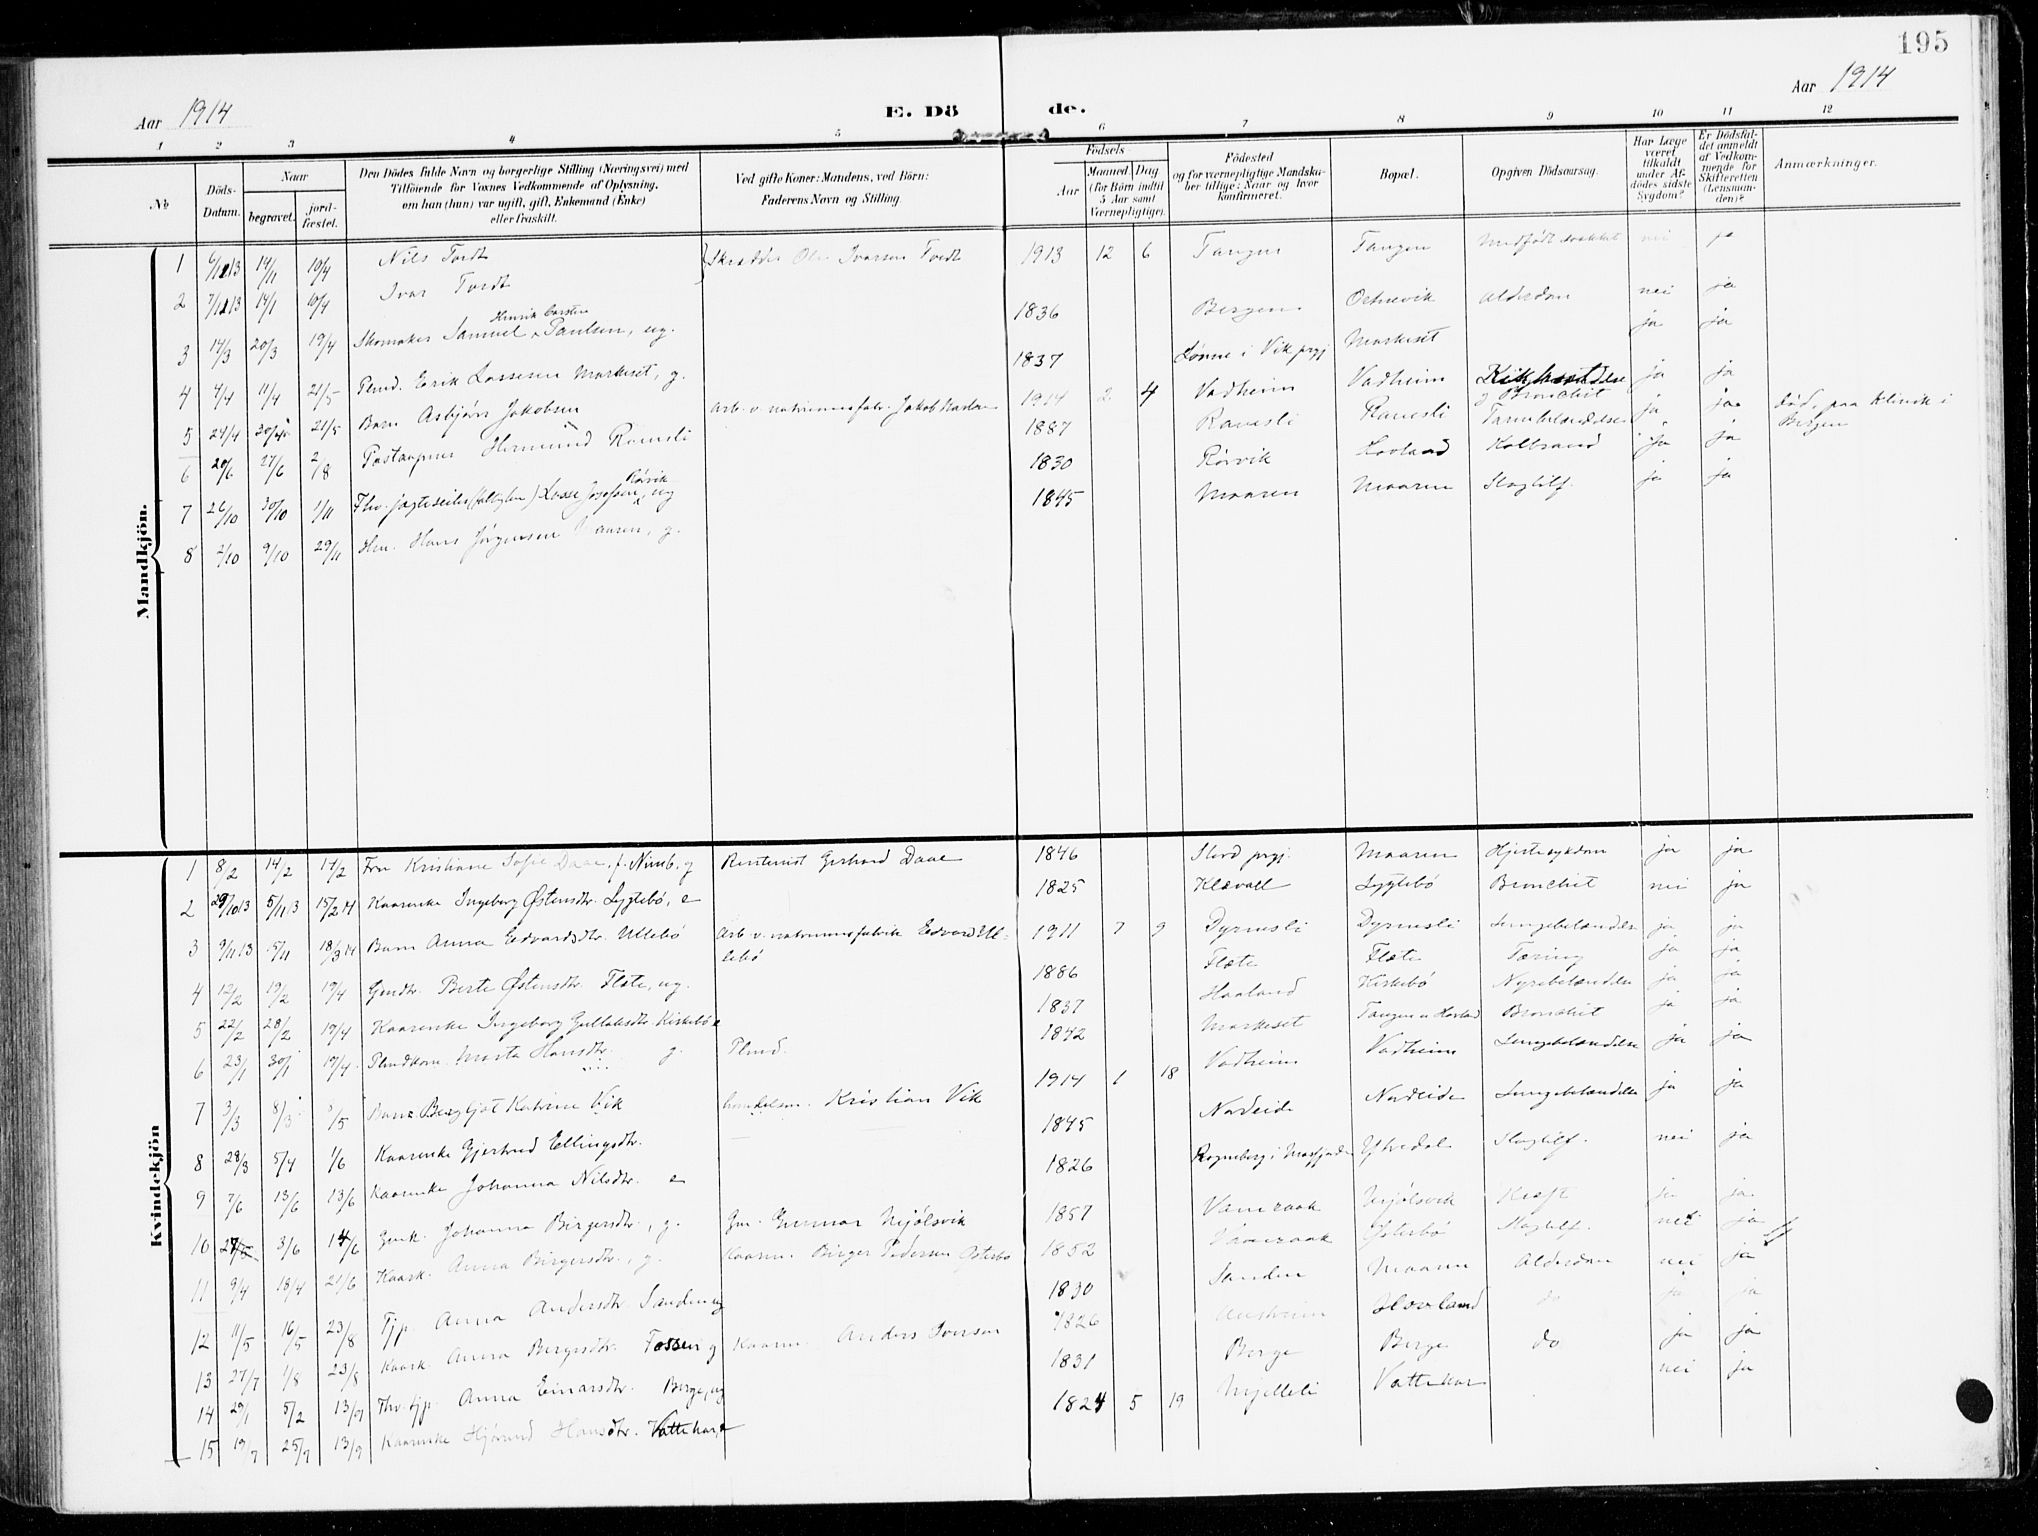 195
Aar 1914
E. Döde.
Aar 1914
1 2 3 4 5 6 7 8 9 10 11 12
No
Döds-Datum.
Naar
begravet.
jord-fæstet.
Den Dödes fulde Navn og borgerlige Stilling (Næringsvei) med
Tilföiende for Voxnes Vedkommende af Oplysning,
om han (hun) var ugift, gift, Enkemand (Enke)
eller fraskilt.
Ved gifte Koner: Mandens, ved Börn:
Faderens Navn og Stilling.
Födsels-
Aar
Maaned Dag
(for Börn indtil
5 Aar samt
Værnepligtige).
Födested
og for værnepligtige Mandska-
ber tillige: Naar og hvor
konfirmeret.
Bopæl.
Opgiven Dödsaarsag.
Har Læge
været
tilkaldt
under Af-
dödes sidste
Sygdom?
Er Dödsfal-
det anmeldt
af Vedkom-
mende for
Skifteretten
(Lensman-
den)?
Anmærkninger.
Mandkjön.
1 6/12 13 14/1 19/4 Nils Tordt Skrædder Ole Iversen Tordt 1913 12 6 Tangen Tangen Medfødt svakhet nei ja
2 7/12 13 14/1 19/4 Ivar Tordt
1836 Bergen Ortnevik Alderdom nei ja
3 14/3 20/3 19/4 Skomaker Samuel Henrik Carsten Paulsen, ug.
1837 Lønne i Vik prgj Markeset ja ja
4 4/4 11/4 21/5 Plmd. Erik Lassesen Markeset, g.
1914 2 4 Vadheim Vadheim Kikhoste og Bronchit ja ja
5 24/4 30/4 21/5 Barn Asbjørn Jakobsen Arb. v. natriumsfabr. Jakob
1887 Ravnsli Ravnsli Tarmbetændelse ja ja død paa Klinik i Bergen
6 20/6 27/6 2/8 Postaapner Hermund Ramsli
1830 Rörvik Hovland Kolbrand ja ja
7 26/10 30/10 1/11 Fhv. jægteseiler Lasse Josefsen Rörvik, ug
1845 Maaren Maaren Slagtilf. ja ja
8 2/10 9/10 29/11 Hm. Hans Jørgensen Maaren, g.
Kvindekjön
1 8/2 14/2 14/2 Fru Kristiane Sofie Daae, f. Nimb. g Rentenist Gerhard Daae 1846 Stord prgj. Maaren Hjertesykdom ja ja
2 29/10 13 5/11 13 15/2 14 Kaarenke Ingeborg Østensdtr. Lyglebö, e 1825 Klævall Lyglebö Bronchit nei ja
3 9/11 13 15/11 18/3 14 Barn Anna Edvardsdtr. Ullebö Arb. v. natriumsfabrik Edvard Ul-
lebö
1911 7 9 Dyrnesli Dyrnesli Lungebetændelse ja ja
4 12/2 19/2 19/4 Gmdtr. Berte Østensdtr. Flete, ug. 1886 Flete Flete Tæring ja ja
5 22/2 28/2 19/4 Kaarenke Ingeborg Gullaksdtr. Kirkebö e 1837 Haaland Kirkebö Nyrebetændelse ja ja
6 23/1 30/1 19/4 Plmdkone Marta Hansdtr. g. Plmd. 1842 Markeset Tangen u Hovland Bronchit ja ja
7 3/3 8/3 8/5 Barn Bergljot Katrine Vik Kristian Vik 1914 1 18 Vadheim Vadheim Lungebetændelse ja ja
8 28/3 5/4 1/6 Kaarenke Gjertrud Ellingsdtr. 1845 Nordeide Nordeide Lungebetændelse ja ja
9 7/6 13/6 13/6 Kaarenke Johanna Nilsdtr. e 1826 Rogneberg i Masfjorden Ytredal Slagtilf. nei ja
10 27/5 3/6 14/6 Gmk. Johanna Birgersdtr., g. Gm. Gunnar Mjölsvik 1857 Vamraak Mjölsvik Kræft ja ja
11 9/4 18/4 21/6 Kaark. Anna Birgersdtr., g. Kaarm. Birger Pedersen Østerbö 1852 Vamraak Østerbö Slagtilf. nei ja
12 11/5 16/5 23/8 Tjp. Anna Andersdtr. Sanden ug 1830 Sanden Maaren Alderdom nei ja
13 27/7 1/8 23/8 Kaark. Anna Bergesdtr. Fossen g Kaarm. Anders Iversen 1826 Hovland do ja ja
14 29/1 5/2 13/9 Fhv. tjp. Anna Einarsdtr. Berge, ug 1831 Berge Berge do ja ja
15 19/7 25/7 13/9 Kaarenke Hjörund Hansdtr. Vattekar, e 1824 5 19 Mjelleli Vattekar nei ja